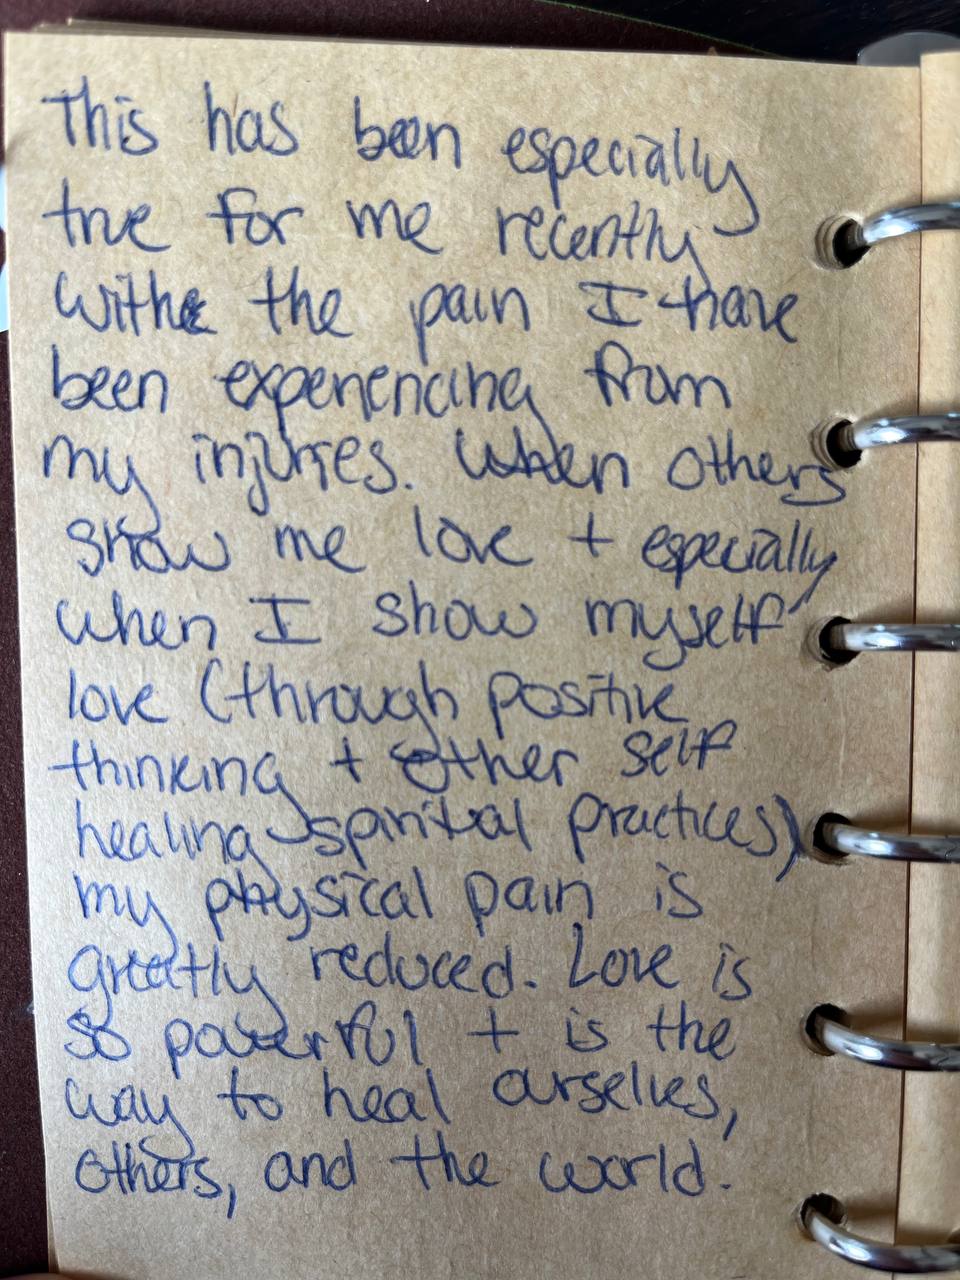 This has been especially
true for me recently
with the pain I have
been experiencing from
my injuries. When others
show me love + especially
when I show myself
love (through positive
thinking + other self
healing spiritual practices)
my physical pain is
greatly reduced. Love is
so powerful + is the
way to heal ourselves,
others, and the world.